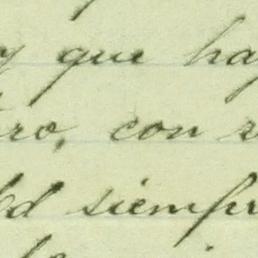 y que ha
ro, con
d siempr